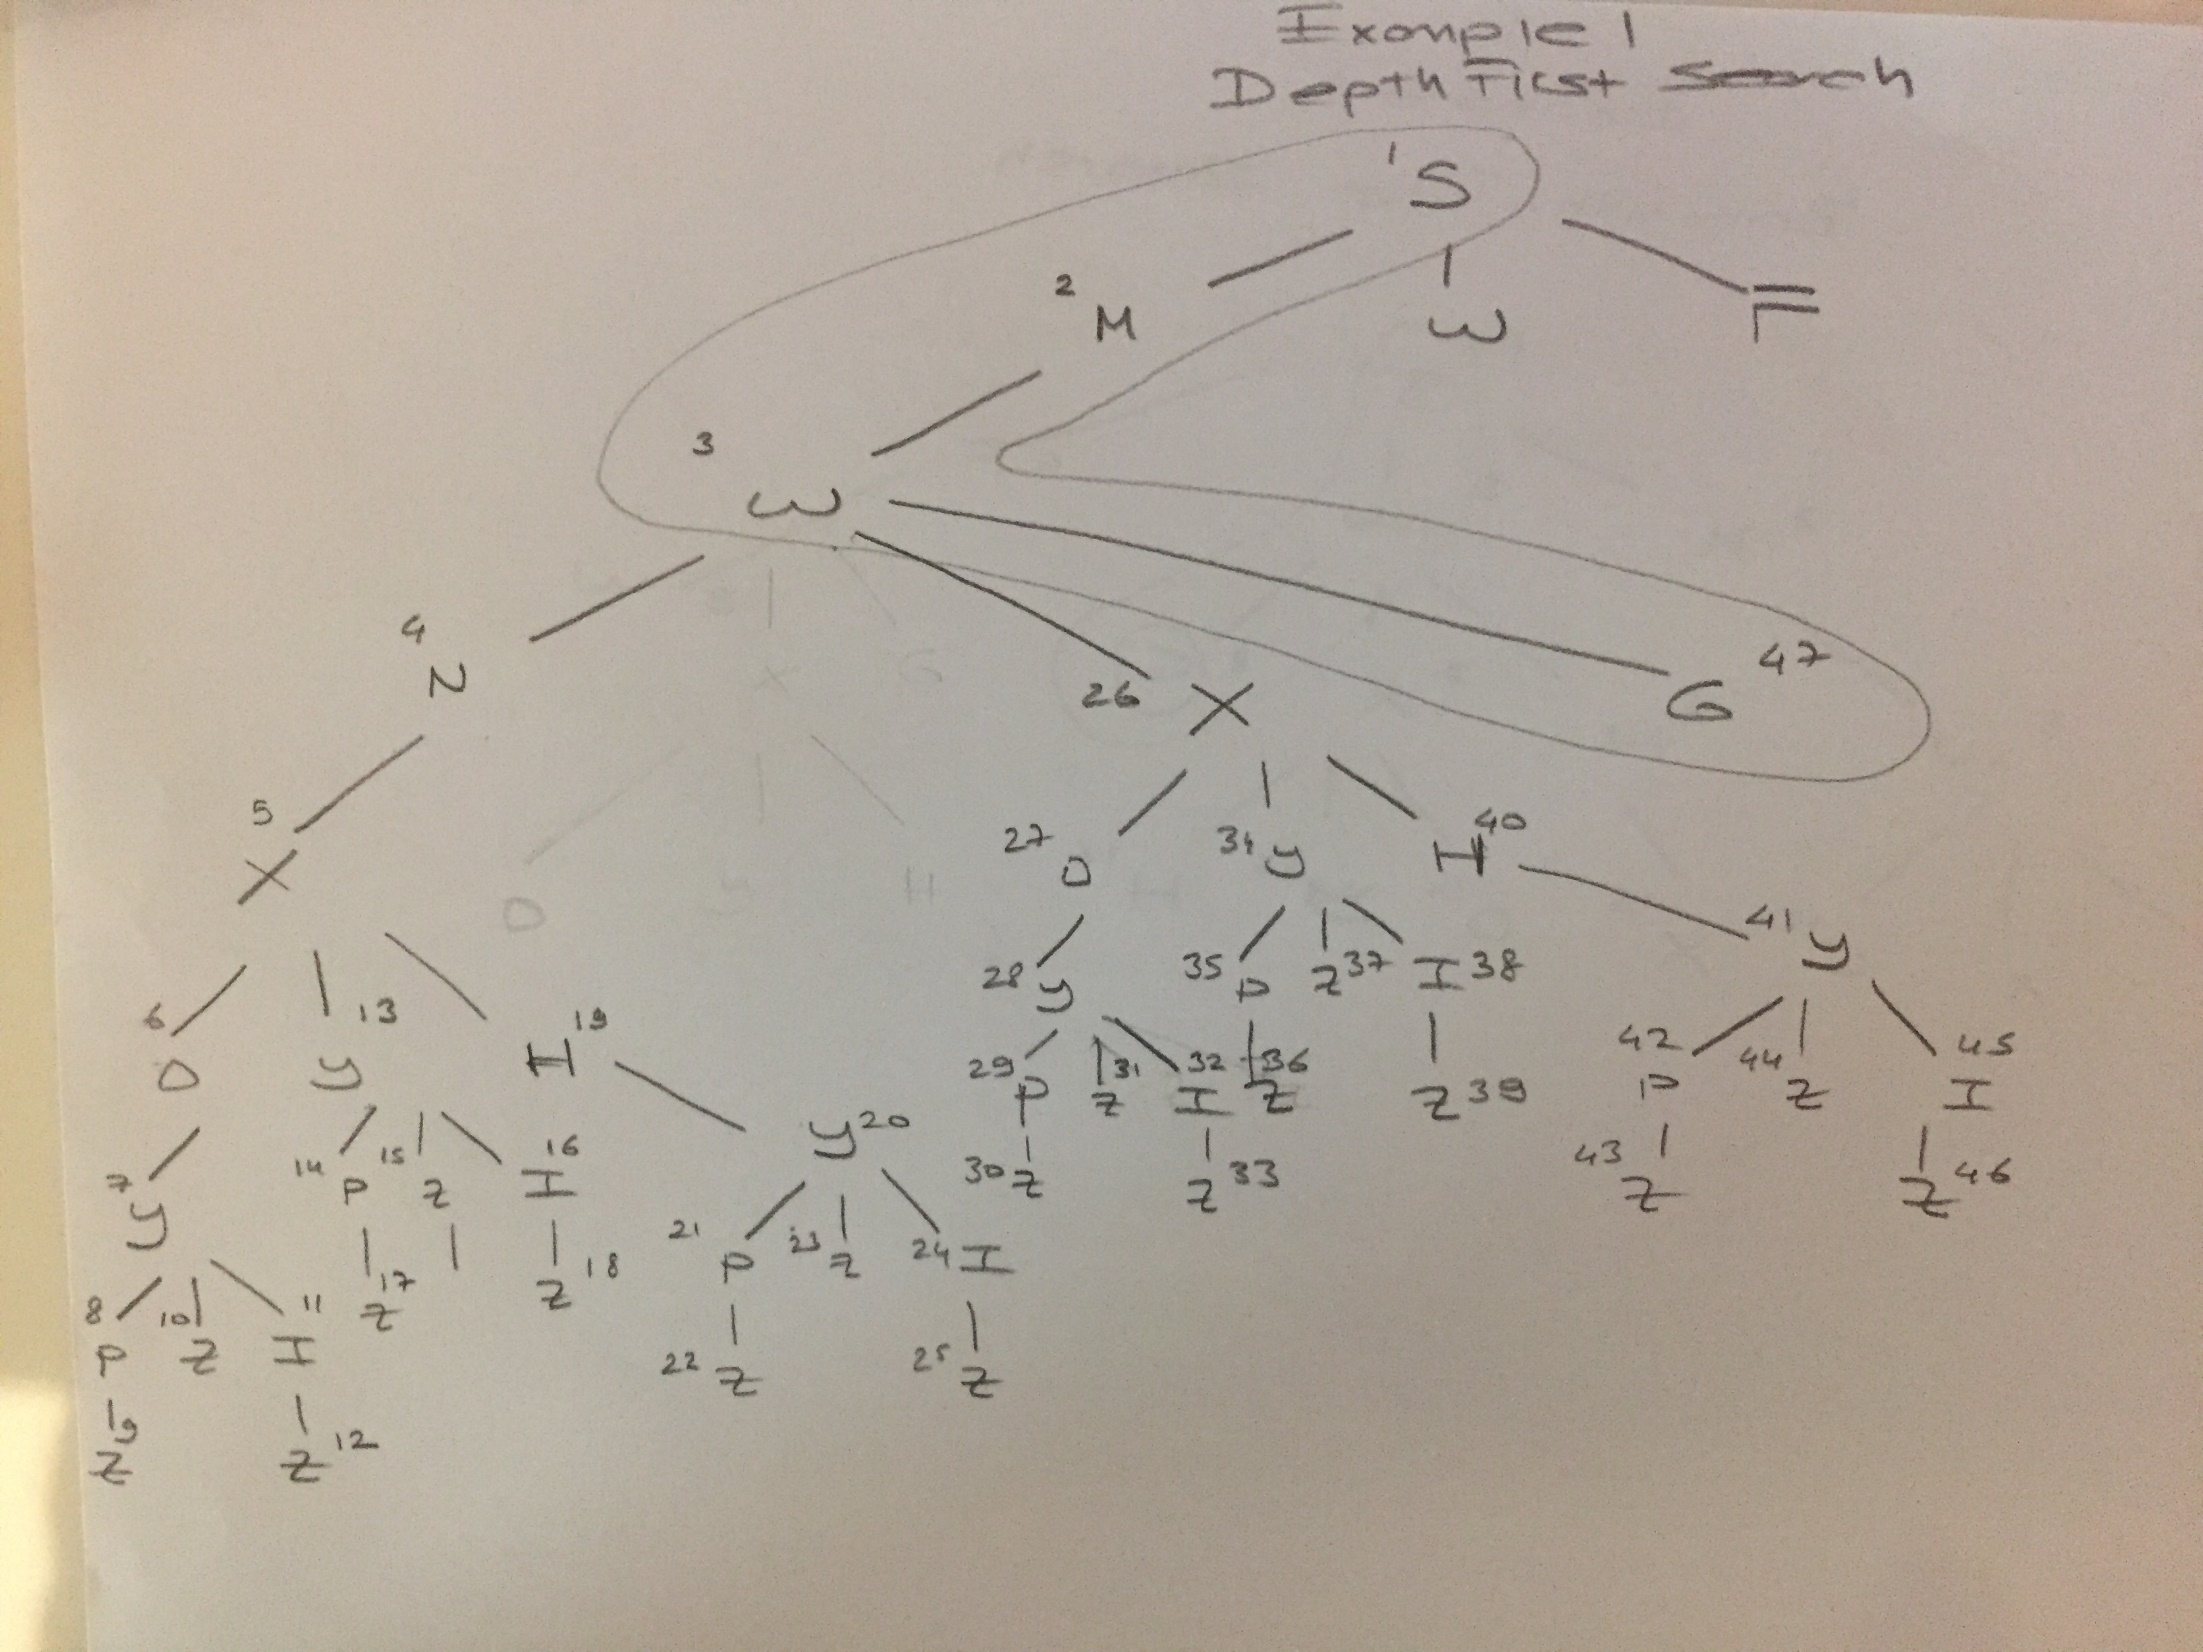 Example 1
Depth First Search
1 S
2 M W F
3 W
4 N 26 X G 47
5 X 27 O 34 y H 40
6 O 13 y H 19 28 y 35 P Z 37 I 38 41 y
7 y 14 P 15 Z I 16 y 20 29 P 31 Z 32 I 36 Z Z 39 42 P 44 Z 45 I
8 P 10 Z 11 I 17 Z Z 18 21 P 23 Z 24 I 30 Z Z 33 43 Z Z 46
9 Z Z 12 22 Z 25 Z